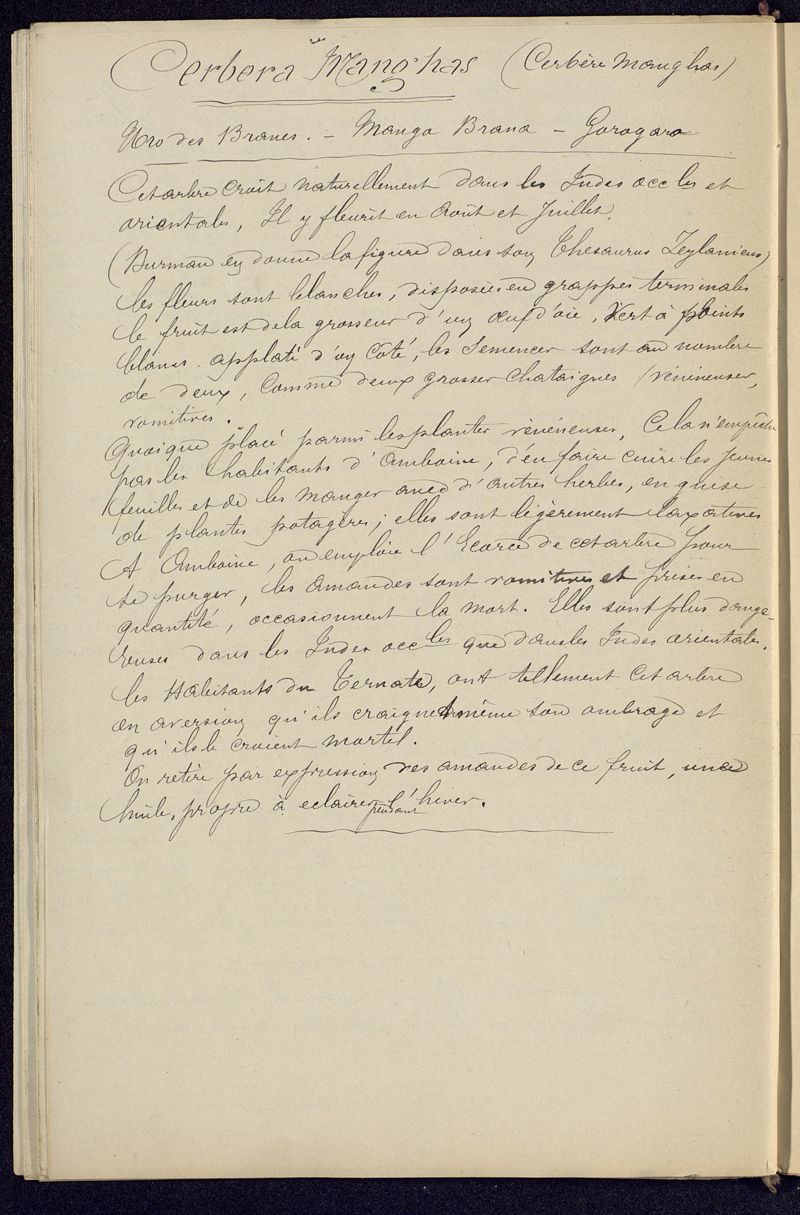 Cerbera Manghas (Cerbère Manghas)
des Branes. - Manga Brana - Gorogaro
Cet arbre croit naturellement dans les Indes occles et
orientales, Il y fleurit en Août et Juillet.
(Burman en donne la figure dans son Thesaurus Zeylanicus)
les fleurs sont blanches, disposées en grappes terminales
le fruit est de la grosseur d'un œuf d'oie, Vert à points
blancs. applati d'un côté, les Semences sont au nombre
de deux, comme deux grosses chataignes (vénéneuses,
vomitives.
Quoique placé parmi les plantes vénéneuses, Cela n'empêche
pas les habitants d'Amboine, d'en faire cuire les jeunes
feuilles et de les manger avec d'autres herbes, en guise
de plantes potagères; elles sont légèrement laxatives
A Amboine, on emploie l'Ecorce de cet arbre pour
se purger, les amandes sont vomitives et prises en
quantité, occasionnent la mort. Elles sont plus dange-
reuses dans les Indes occles que dans les Indes orientales.
les Habitants du Ternate, ont tellement cet arbre
en aversion qu'ils craignent même son ombrage et
qu'ils le croient mortel.
On retire par expression des amandes de ce fruit, une
huile, propre à eclairer pendant l'hiver.